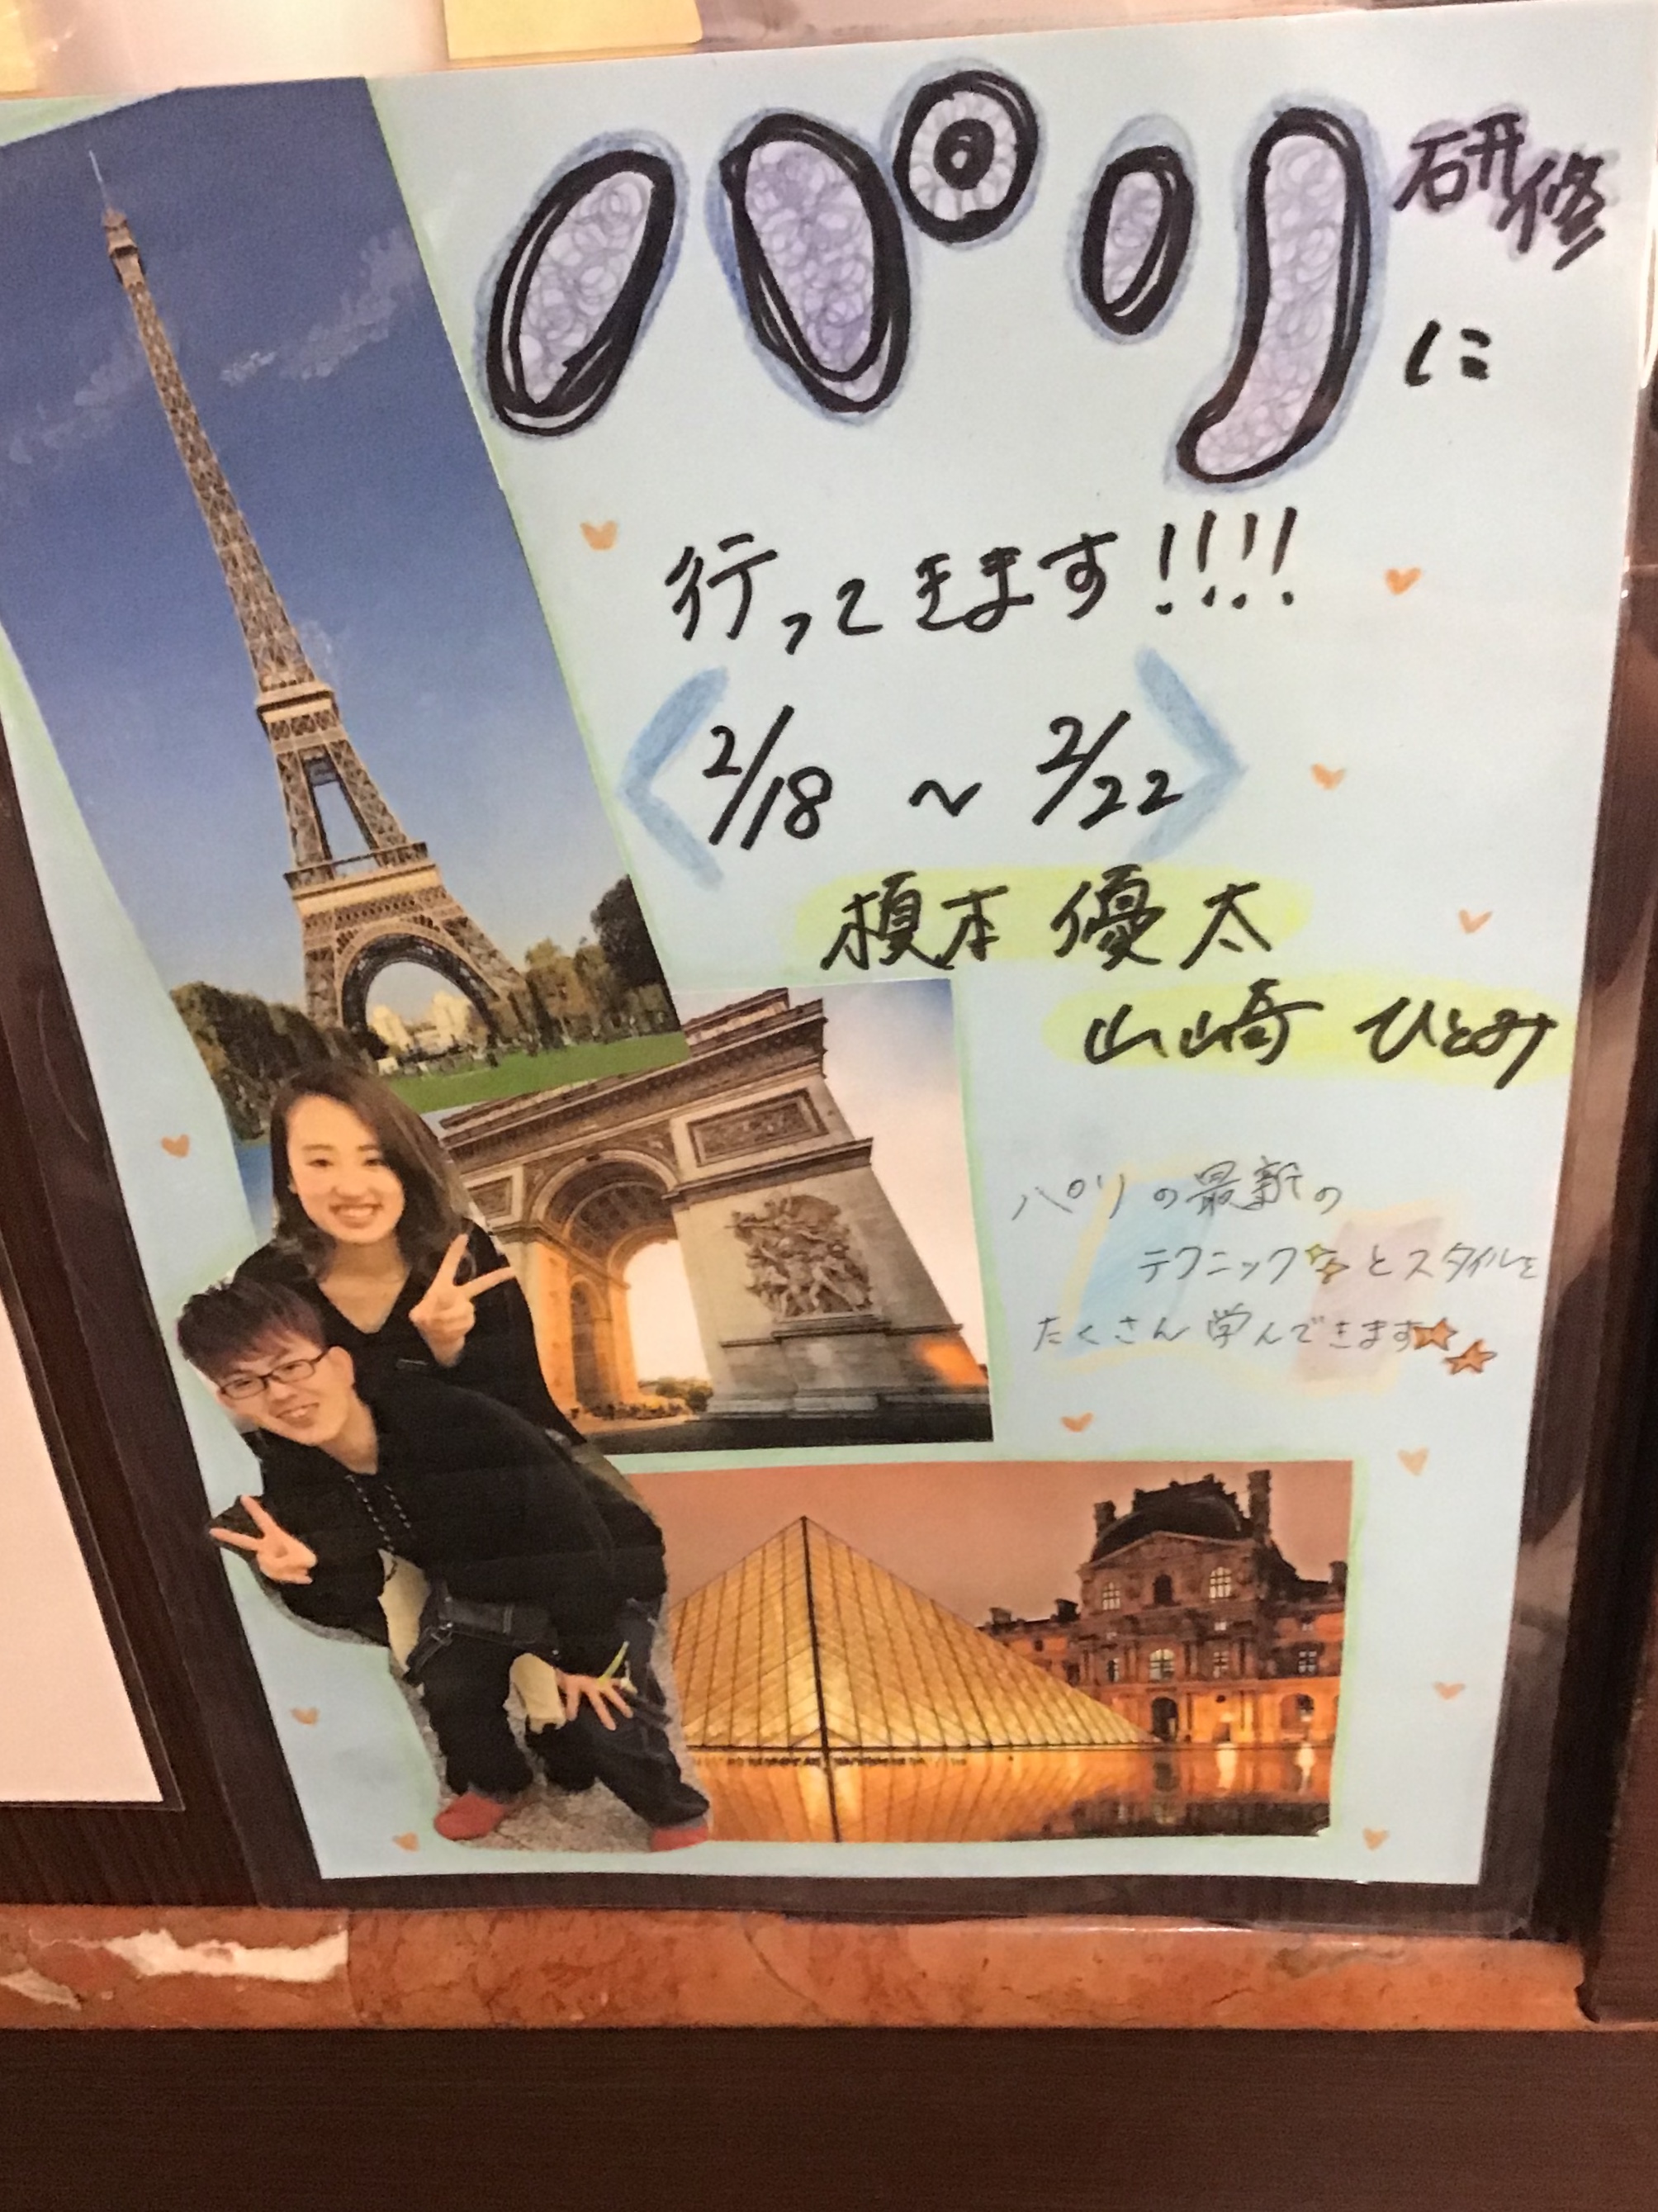 パリ研修
に
行ってきます!!!!
<2/18 ~ 2/22>
榎本 優太
山崎 ひとみ
パリの最新の
テクニックとスタイルを
たくさん学んできます